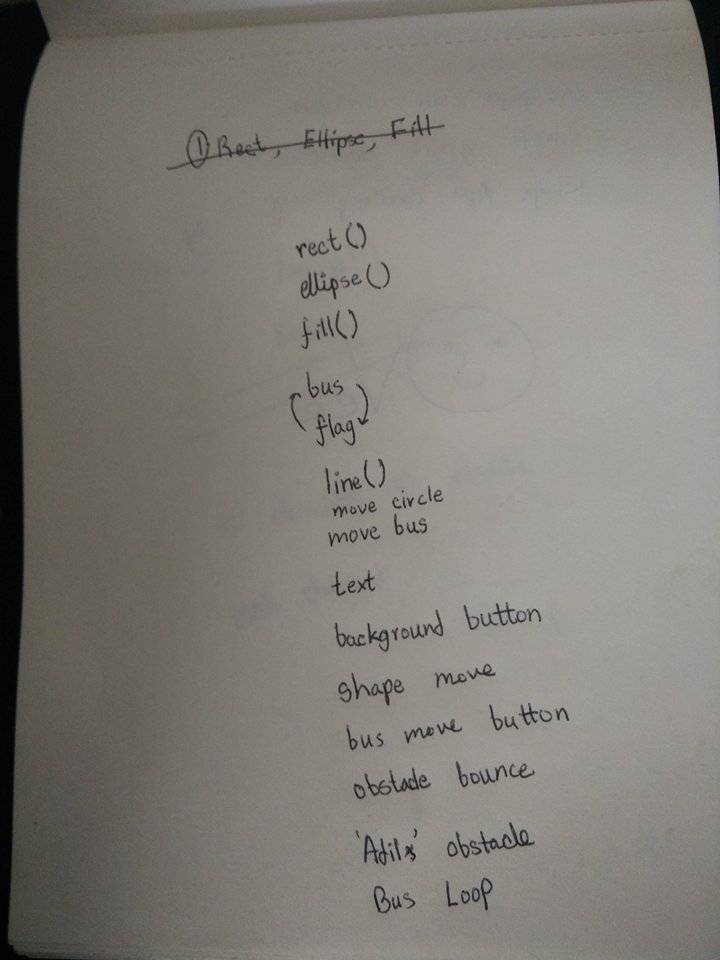 ① Rect, Ellipse, Fill
rect()
ellipse()
fill()
bus
flag
line()
move circle
move bus
text
background button
shape move
bus move button
obstacle bounce
obstacle
Bus Loop